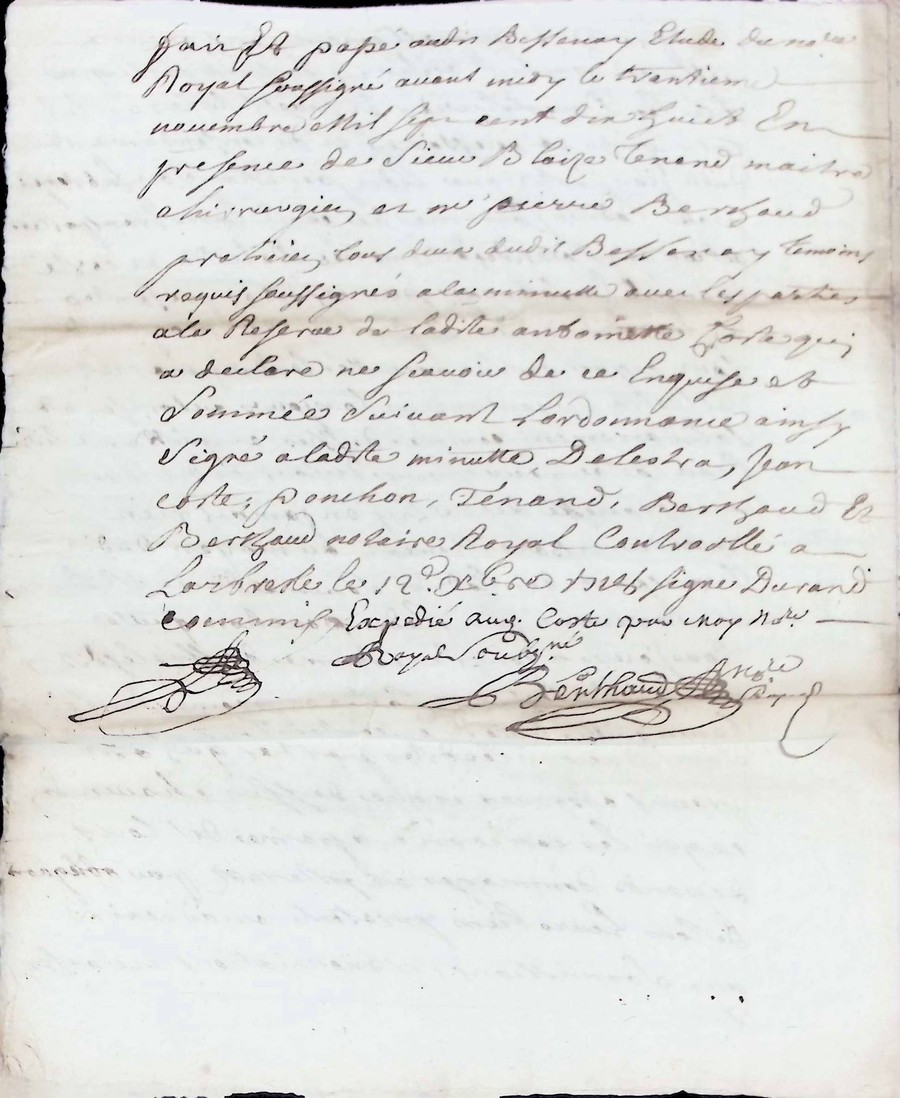 fait Et passé audit Bessenay Etude du no.re
Royal soussigné avant midy le trantieme
novembre Mil sept cent dix huict En
presence de Sieur Blaize Tenand maitre
chirurgien et mr pierre Berthaud
praticien tous deux dudit Bessenay temoins
requis soussignés a la minutte avec les parties
a la Reserve de ladite antoinette Corte qui
a declaré ne scavoir de ce Enquise et
Sommée suivant Lordonnance ainsy
Signé a ladite minutte, Delestra, Jean
corte, ponchon, Tenand, Berthaud Et
Berthaud notaire Royal Controollé a
Larbresle le 12e xbre 1718 signé Durand
commis, Expedié aux Corte par Moy No.re
Royal Soubsigné
Berthaud No.re